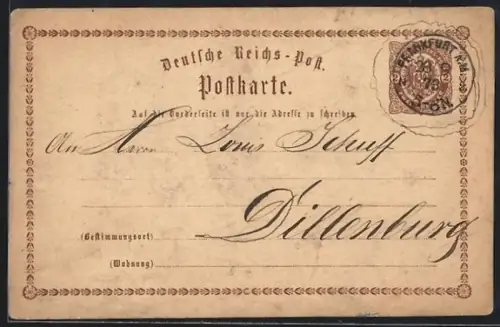 Deutsche Reichs-Post.
Postkarte.
FRANKFURT A.M.
76
Auf die Vorderseite ist nur die Adresse zu schreiben.
An Herrn Louis
Dillenburg
(Bestimmungsort)
(Wohnung)